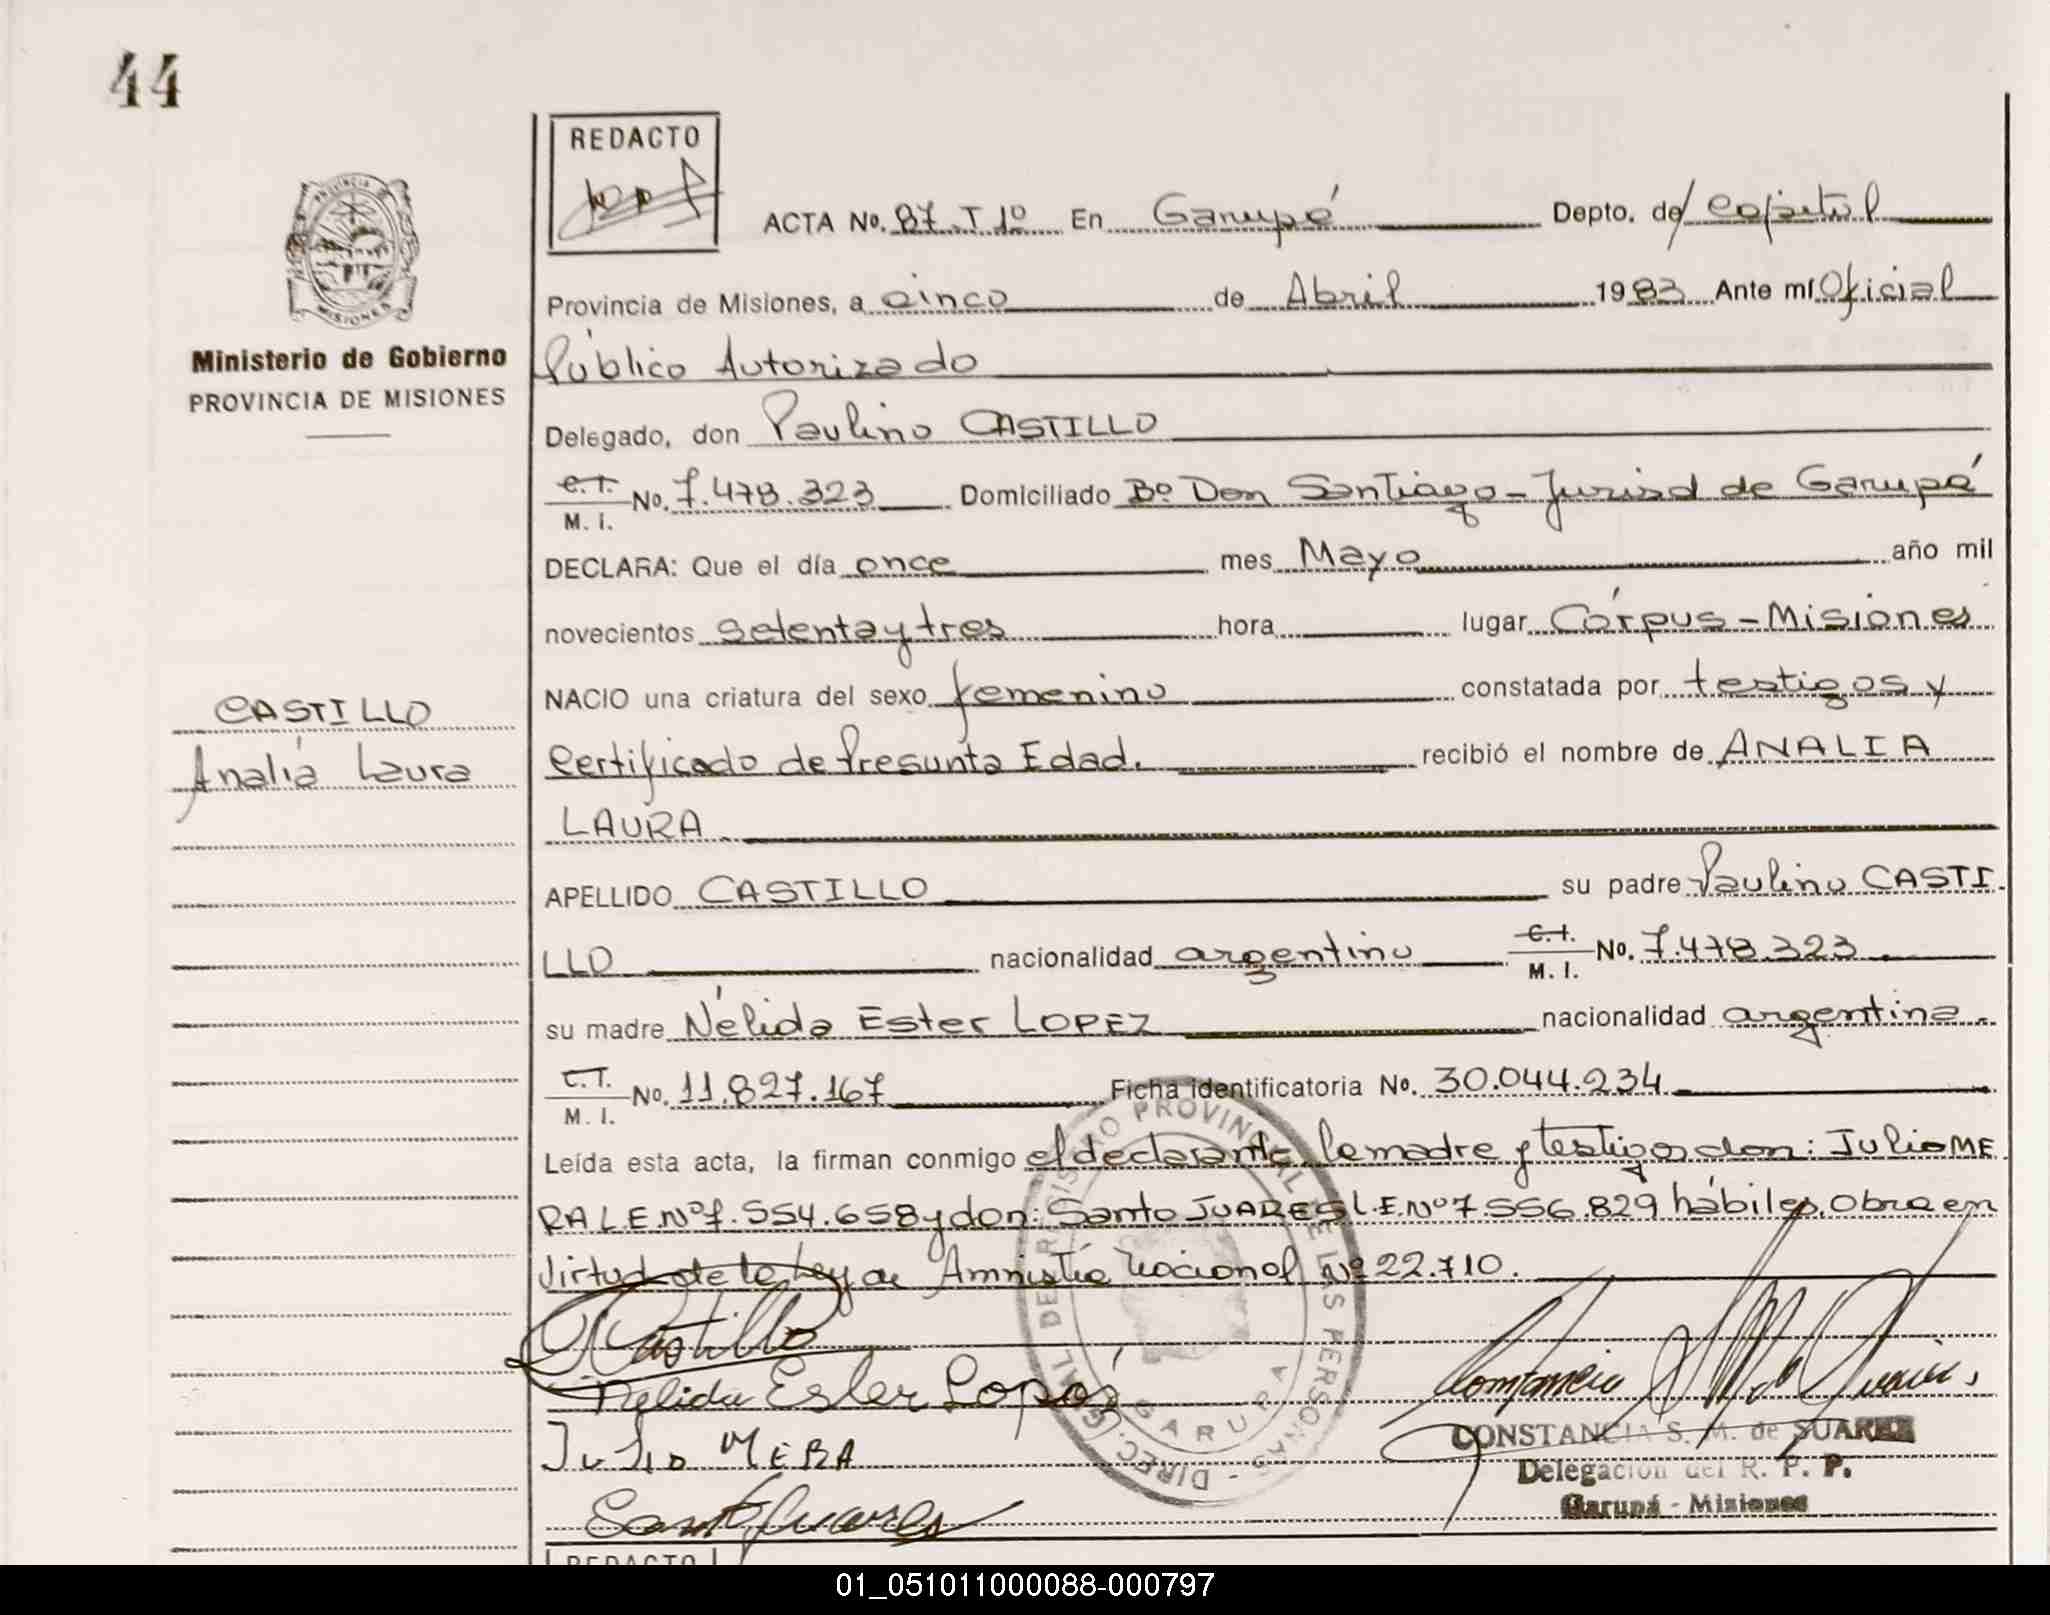 44
REDACTO
ACTA No. 87 T 1º En Garupá Depto. de Capital
Provincia de Misiones, a cinco de Abril 1983 Ante mí Oficial
Ministerio de Gobierno
PROVINCIA DE MISIONES
Público Autorizado
Delegado, don Paulino CASTILLO
C.I. M. I. No. 7.478.323 Domiciliado Bº Don Santiago - Jurisd de Garupá
DECLARA: Que el día once mes Mayo año mil
novecientos setenta y tres hora lugar Córpus - Misiones
NACIO una criatura del sexo femenino constatada por testigos y
CASTILLO
Analía Laura
Certificado de Presunta Edad. recibió el nombre de ANALIA
LAURA
APELLIDO CASTILLO su padre Paulino CASTI
LLO nacionalidad argentino C.I. M. I. No. 7.478.323
su madre Nélida Ester LOPEZ nacionalidad argentina.
C.I. M. I. No. 11.827.167 Ficha identificatoria No. 30.044.234
Leída esta acta, la firman conmigo el declarante, la madre y testigos don: Julio ME
RA L.E.Nº 7.554.658 y don: Santo JUARES L.E.Nº 7.556.829 hábiles. Obra en
virtud de la Ley de Amnistía Nacional Nº 22.710.
Castillo
Nelida Ester Lopés
Julio MERA
Santo Juares
DIREC. GRAL. DE REGISTRO PROVINCIAL DE LAS PERSONAS - GARUPA
CONSTANCIA S. M. de SUAREZ
Delegación del R. P. P.
Garupá - Misiones
REDACTO
01_051011000088-000797